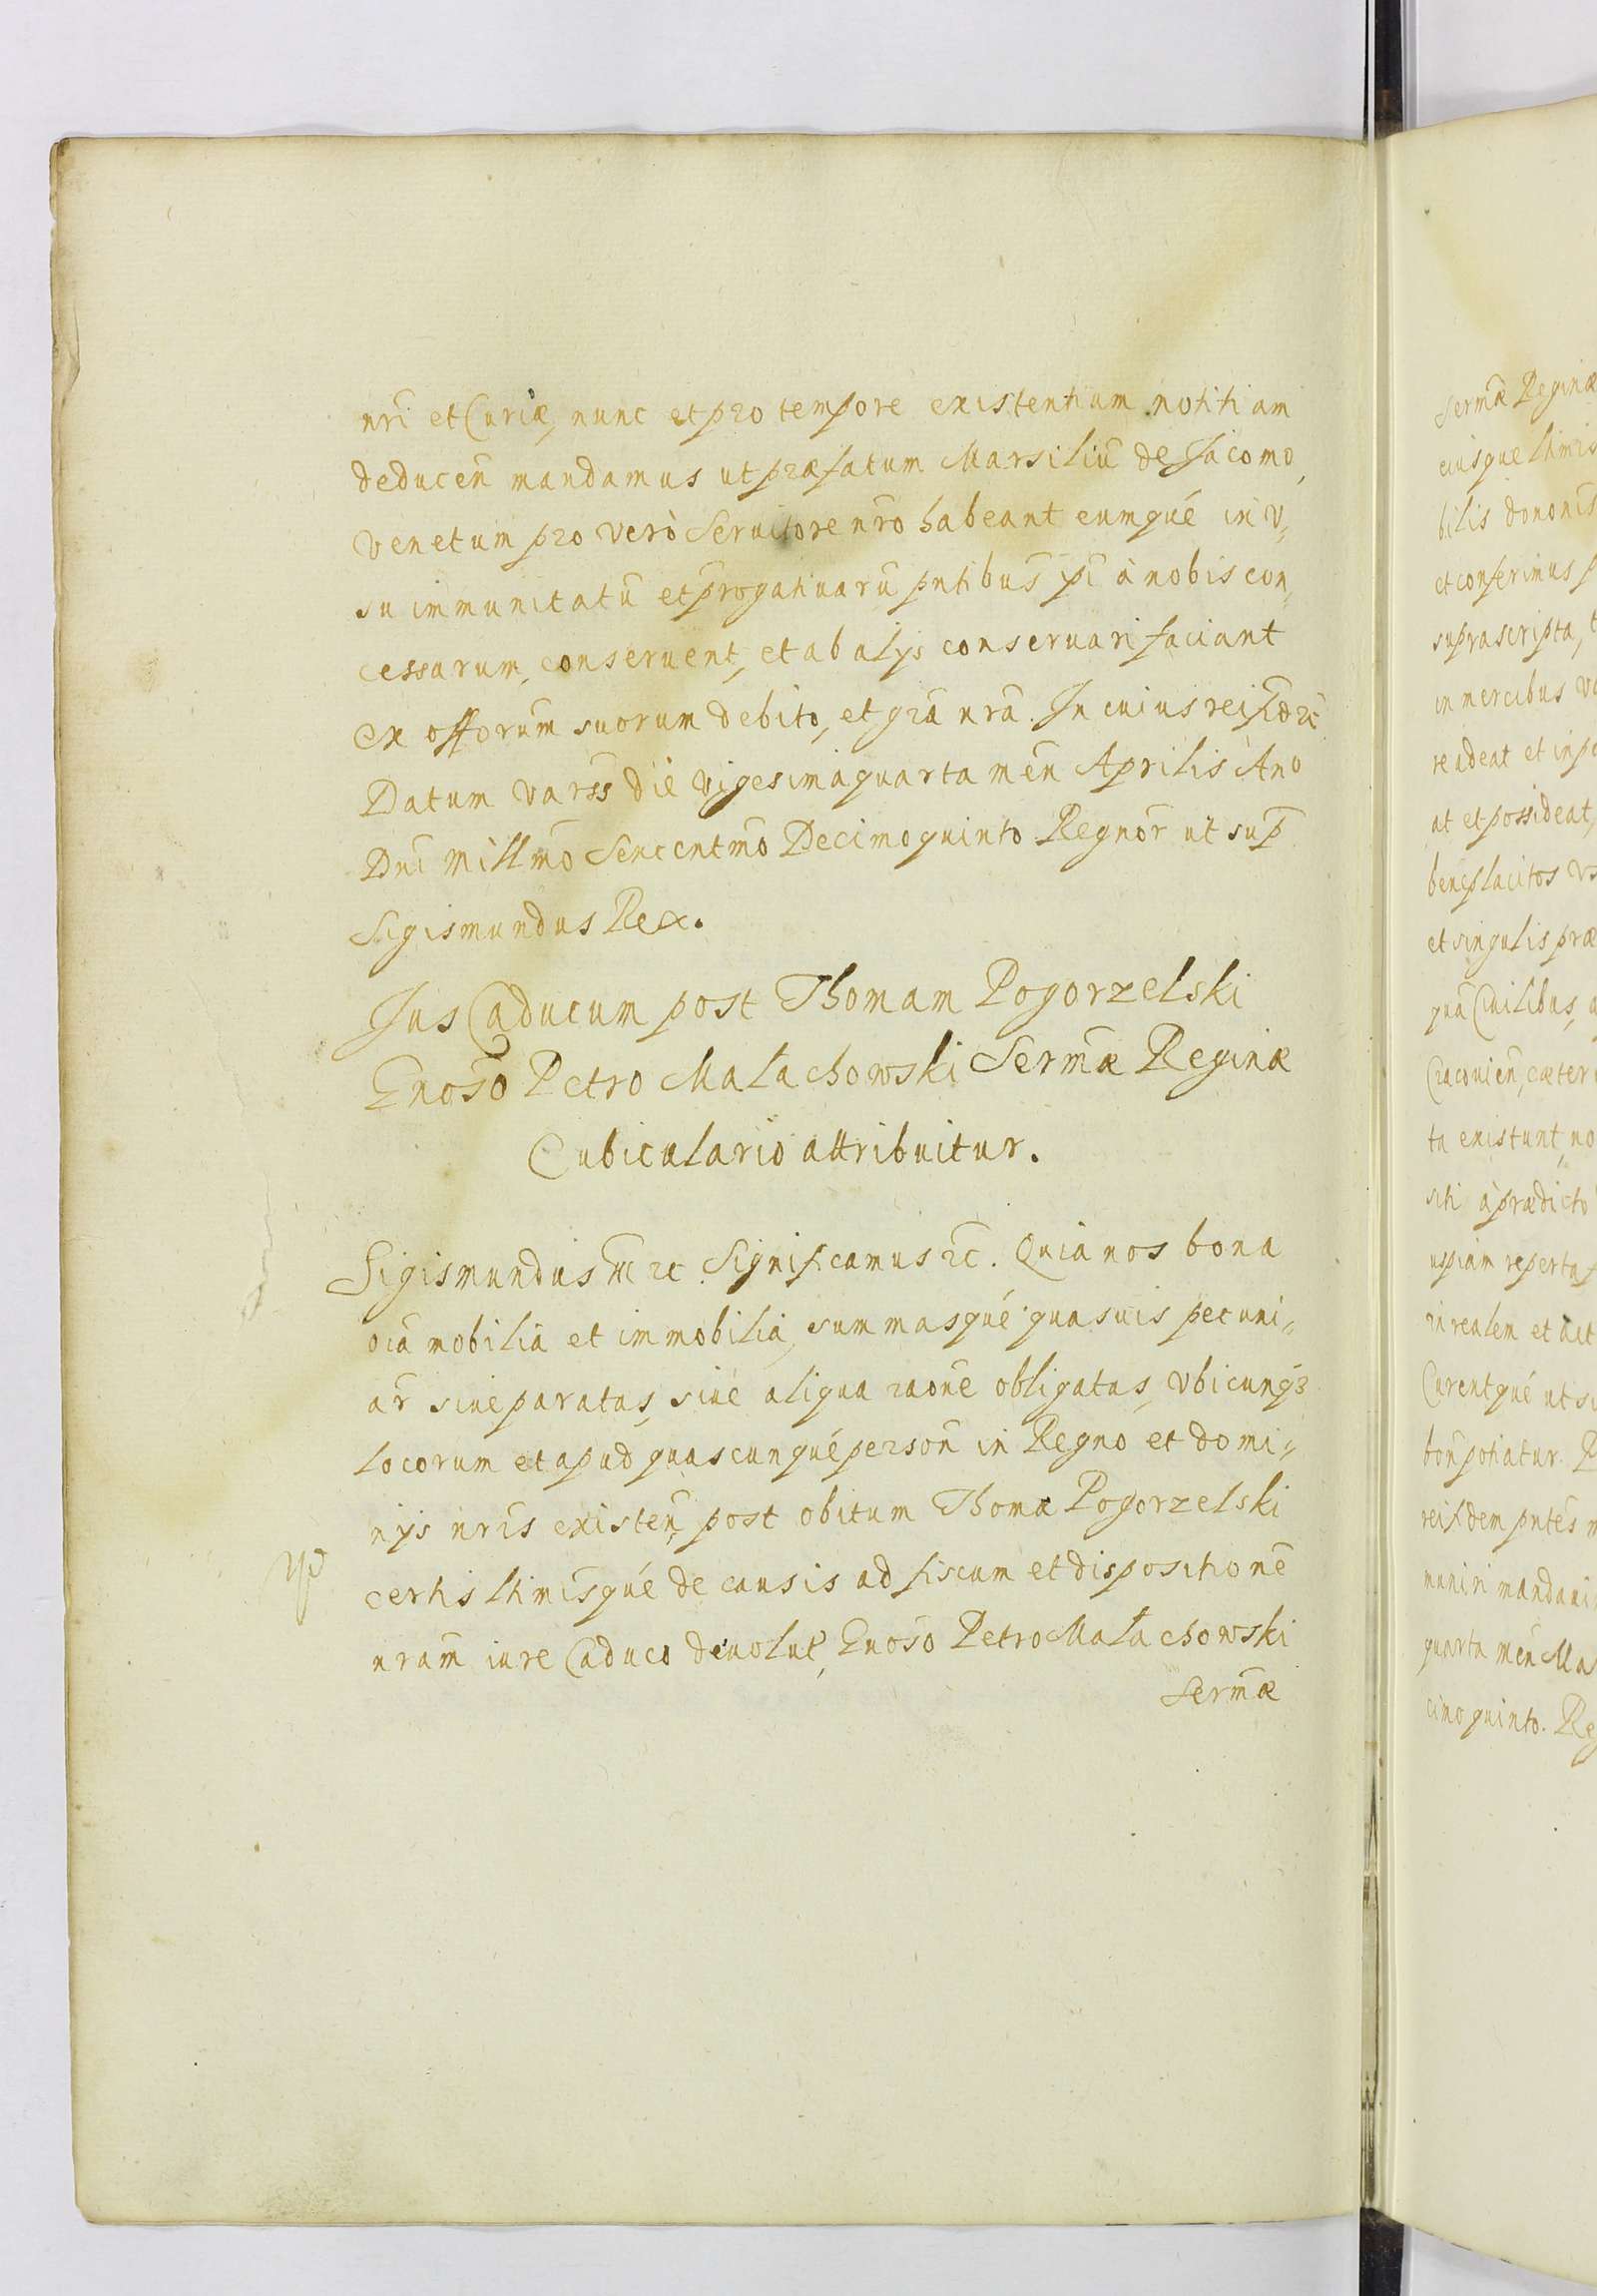 nr̃i et Curiæ, nunc et pro tempore existentium notitiam
deducen̄ mandamus ut præfatum Marsiliū de Jacomo,
Venetum pro verò Seruitore nr̃o habeant eumqué in v„
su immunitatū et prōgatiuarū pn̄tibus p̄i à nobis con„
cessarum, conseruent, et ab alijs conseruari faciant
ex offorum̄ suorum debito, et grā nr̃ā. In cuius rei fid̄ ꝛc̄
Datum Varss̄ die vigesima quarta men̄ Aprilis An̄o
Dn̄i Millm̄o Sexcentm̄o Decimo quinto Regnor̄ ut sup̄
Sigismundus Rex.
Jus Caducum post Thomam Pogorzelski
Gnōso Petro Małachowski Serm̄æ Reginæ
Cubiculario attribuitur.
Sigismundus III ꝛc. Significamus ꝛc̄. Quia nos bona
oīa mobilia et immobilia, summasqué quasuis pecuni„
ar̄ siue paratas, siue aliqua raōne obligatas, vbicunqꝫ
locorum et apud quascunqué person̄ in Regno et domi„
nijs nr̄is existen̄, post obitum Thomæ Pogorzelski
certis ltimisqué de causis ad fiscum et dispositionē
nram̄ iure Caduco deuolut̄, Gnōso Petro Małachowski
Serm̄æ
Serm̄æ Reginæ
eiusque ltimis
bilis donōnis
et conferimus
suprascripta,
in mercibus
redeat et
at et possideat,
beneplacitos
et singulis præ
quā Ciuilibus,
Cracouien̄, cæter
ta existunt, no
siti à prædicto
uspiam reperta
in realem et act
Curentqué ut
bon̄ potiatur.
rei fidem pn̄tēs
muniri mandaui
quarta men̄ Ma
cimo quinto. Reg